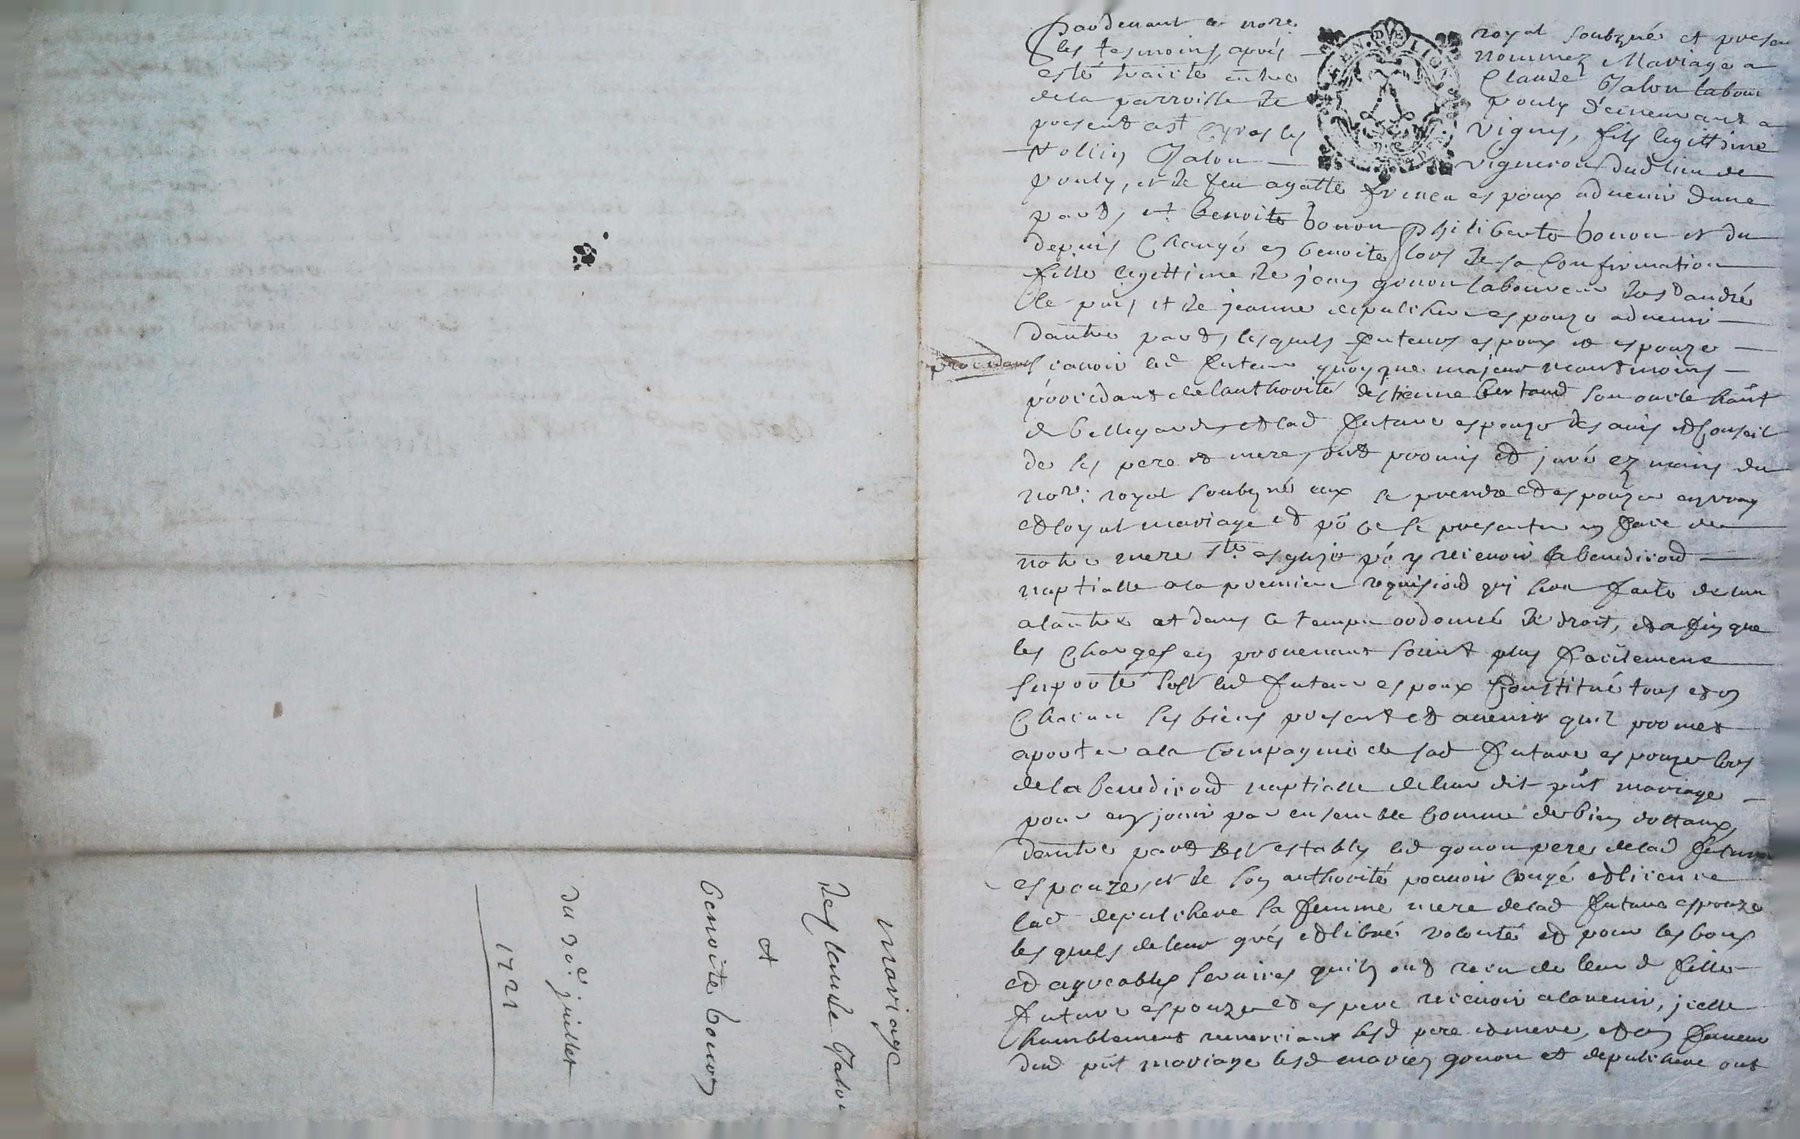 mariage
de Claude Jalon
et
benoite bonon
du 30e juillet
1721
Pardevant le nore. royal soubzné et presen
les tesmoins apnés nommez Mariage a
esté traicté entre Claude Jalon labour
de la parroisse de pouly d'emeurant a
present a st Cyr les vignes, fils legittime
Jalon vigneron dud lieu de
pouly, et de feu agatte frença espoux advenir dune
part, et benoite bonon philiberte bonon et du
depuis changé en benoite lors de sa Confirmation
fille legittime de jean gonon laboureur de st andré
le puis et de jeanne depulchere espouze advenir
dautre part, lesquels futeurs espoux et espouze
scavoir led futeur quoyque majeur neantmoins
procedant de lauthorité destienne bertand son oncle
de bellegarde et lad future espouze des avis et Conseil
de ses pere et mere, ont promis et juré ez mains du
nore. royal soubzné eux se prendre et espouzer en vray
et loyal mariage et po ce se presenter en face de
notre mere ste esglize po y recevoir la benediction
nuptialle a la premiere requisiond qui sera faite de lun
a lautre et dans le temps ordonné de droit, et a fin que
les Charges en provenant soient plus facilement
suporté led futeur espoux Constitué tous et un
Chacun ses biens present et avenir quil promet
aporter a la Compagnie de sad future espouze lors
de la benediction nuptialle de leur dit pnt mariage
pour en jouir par ensemble Comme de bien dottaux,
dautre part estably led gonon pere de lad future
espouze, et de son authorité pouvoir Congé et licence
lad depulchere sa femme mere de lad future espouze
lesquels de leur grés et libre volonté et pour les bons
et agreables services quils ont receu de leur d fille
future espouze et espere recevoir a lavenir, icelle
humblement remerciant lesd pere et mere, et en faveur
dud pnt mariage lesd mariez gonon et depulchere ont